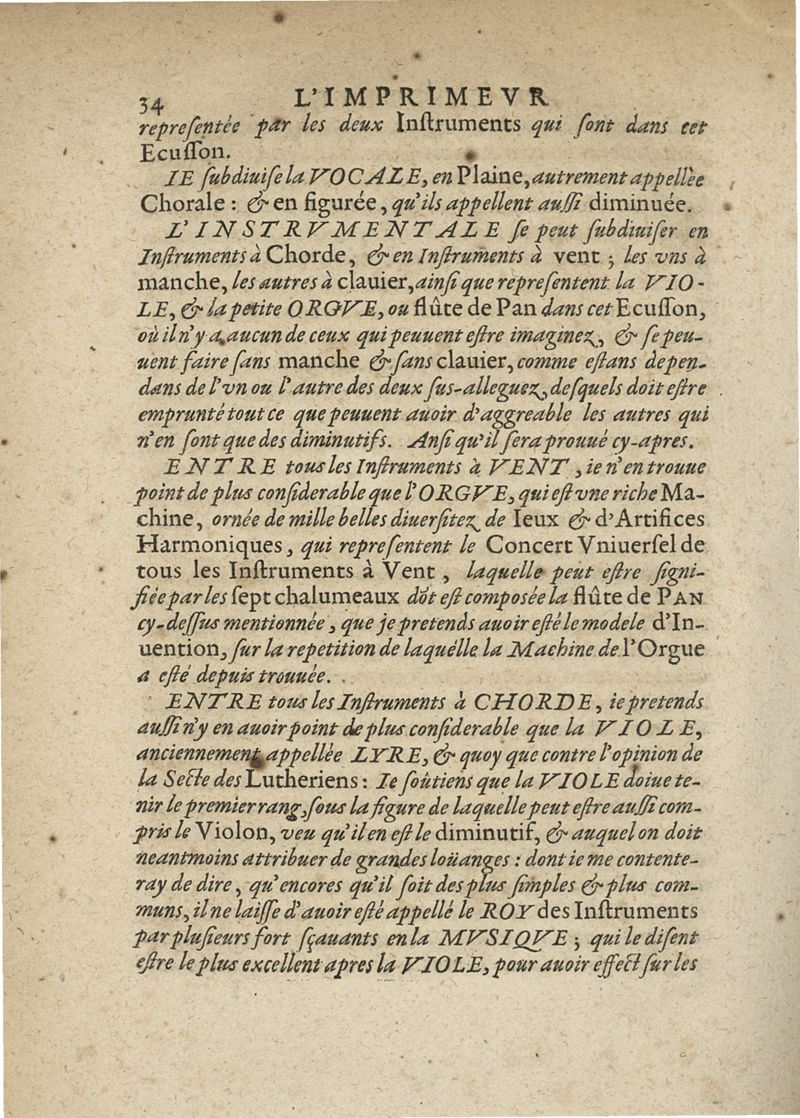 34 L'IMPRIMEVR
repreſentée par les deux Inſtruments qui ſont dans cet
Ecuſſon.
IE ſubdiuiſe la VOCALE, en Plaine, autrement appellèe
Chorale : & en figurée, qu'ils appellent auſſi diminuée.
L'INSTRVMENTALE ſe peut ſubdiuiſer en
Inſtruments à Chorde, & en Inſtruments à vent ; les vns à
manche, les autres à clauier, ainſi que repreſentent la VIO-
LE, & la petite ORGVE, ou flûte de Pan dans cet Ecuſſon,
où il n'y a aucun de ceux qui peuuent eſtre imaginez, & ſe peu-
uent faire ſans manche & ſans clauier, comme eſtans depen-
dans de l'vn ou l'autre des deux ſus-alleguez, deſquels doit eſtre
emprunté tout ce que peuuent auoir d'aggreable les autres qui
n'en ſont que des diminutifs. Anſi qu'il ſera prouué cy-apres.
ENTRE tous les Inſtruments à VENT, ie n'en trouue
point de plus conſiderable que l'ORGVE, qui eſt vne riche Ma-
chine, ornée de mille belles diuerſitez de Ieux & d'Artifices
Harmoniques, qui repreſentent le Concert Vniuerſel de
tous les Inſtruments à Vent, laquelle peut eſtre ſigni-
fiée par les ſept chalumeaux dõt eſt compoſée la flûte de PAN
cy-deſſus mentionnée, que je pretends auoir eſté le modele d'In-
uention, ſur la repetition de laquélle la Machine de l'Orgue
a eſté depuis trouuée.
ENTRE tous les Inſtruments à CHORDE, ie pretends
auſſi n'y en auoir point de plus conſiderable que la VIOLE,
anciennement appellée LYRE, & quoy que contre l'opinion de
la Secte des Lutheriens : Ie ſoûtiens que la VIOLE doiue te-
nir le premier rang, ſous la figure de laquelle peut eſtre auſſi com-
pris le Violon, veu qu'il en eſt le diminutif, & auquel on doit
neantmoins attribuer de grandes loüanges : dont ie me contente-
ray de dire, qu'encores qu'il ſoit des plus ſimples & plus com-
muns, il ne laiſſe d'auoir eſté appellé le ROY des Inſtruments
par pluſieurs fort ſçauants en la MVSIQVE ; qui le diſent
eſtre le plus excellent apres la VIOLE, pour auoir effect ſur les